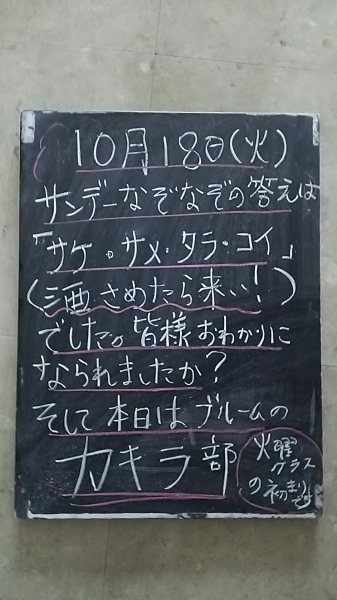 10月18日(火)
サンデーなぞなぞの答えは
「サケ・サメ・タラ・コイ」
(酒さめたら来い!)
でした。皆様おわかりに
なられましたか?
そして本日はブルームの
カキラ部
火曜
クラス
の初まり
です